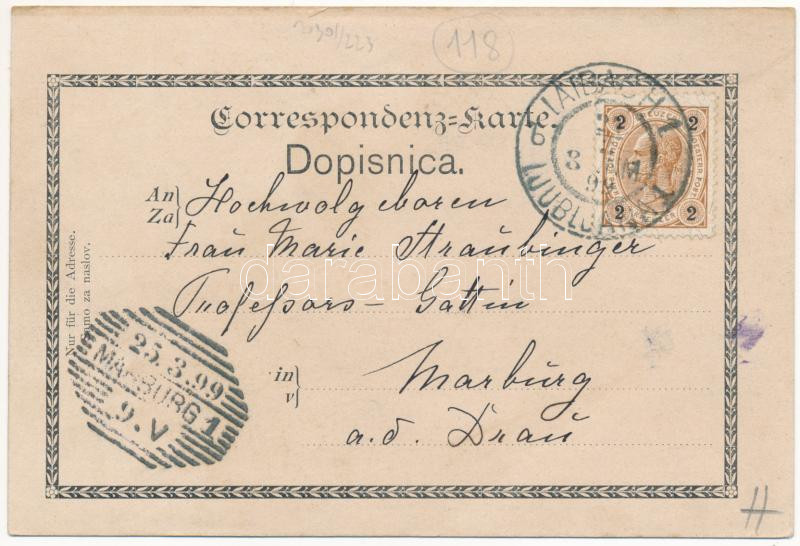 118
Correspondenz-Karte.
Dopisnica.
An
Za
Hochwolgeboren
Frau Marie Straubinger
Professors-Gattin
in
v
Marburg
a.d. Drau
Nur für die Adresse.
Samo za naslov.
LAIBACH 1
LJUBLJANA 1
2 2
2 2
25.3.99
MARBURG 1
9.V
darabanth
H